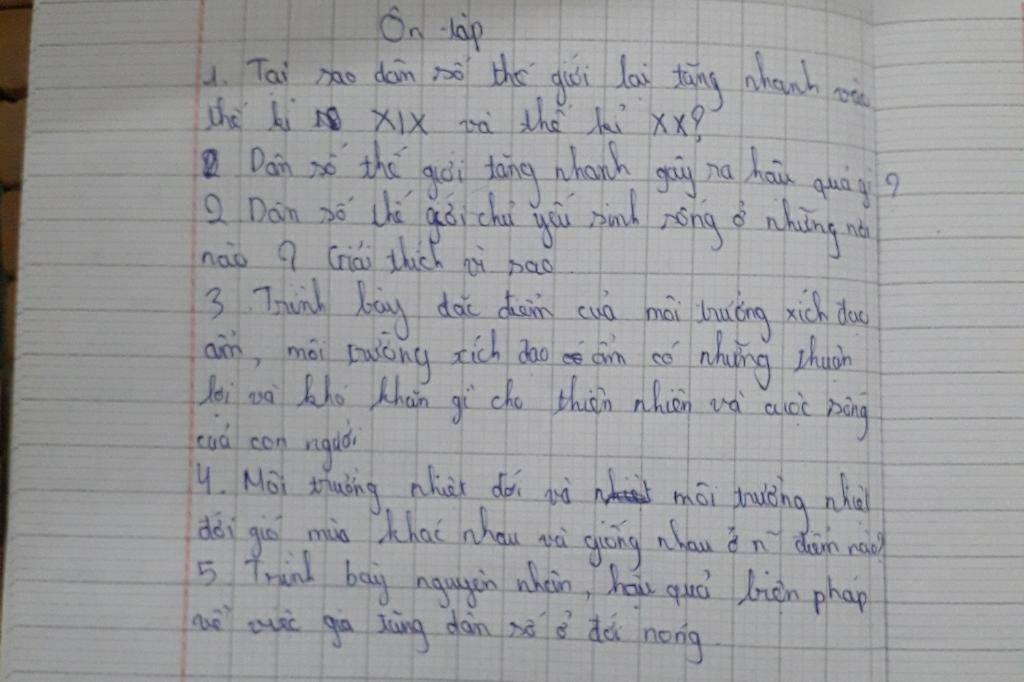 Ôn tập
1. Tại sao dân số thế giới lại tăng nhanh vào
thế kỉ XIX và thế kỉ XX?
Dân số thế giới tăng nhanh gây ra hậu quả gì?
2 Dân số thế giới chủ yếu sinh sống ở những nơi
nào? Giải thích vì sao
3. Trình bày đặc điểm của môi trường xích đạo
ẩm, môi trường xích đạo ẩm có những thuận
lợi và khó khăn gì cho thiên nhiên và cuộc sống
của con người
4. Môi trường nhiệt đới và môi trường nhiệt
đới gió mùa khác nhau và giống nhau ở n~ điểm nào?
5 Trình bày nguyên nhân, hậu quả biện pháp
về việc gia tăng dân số ở đới nóng